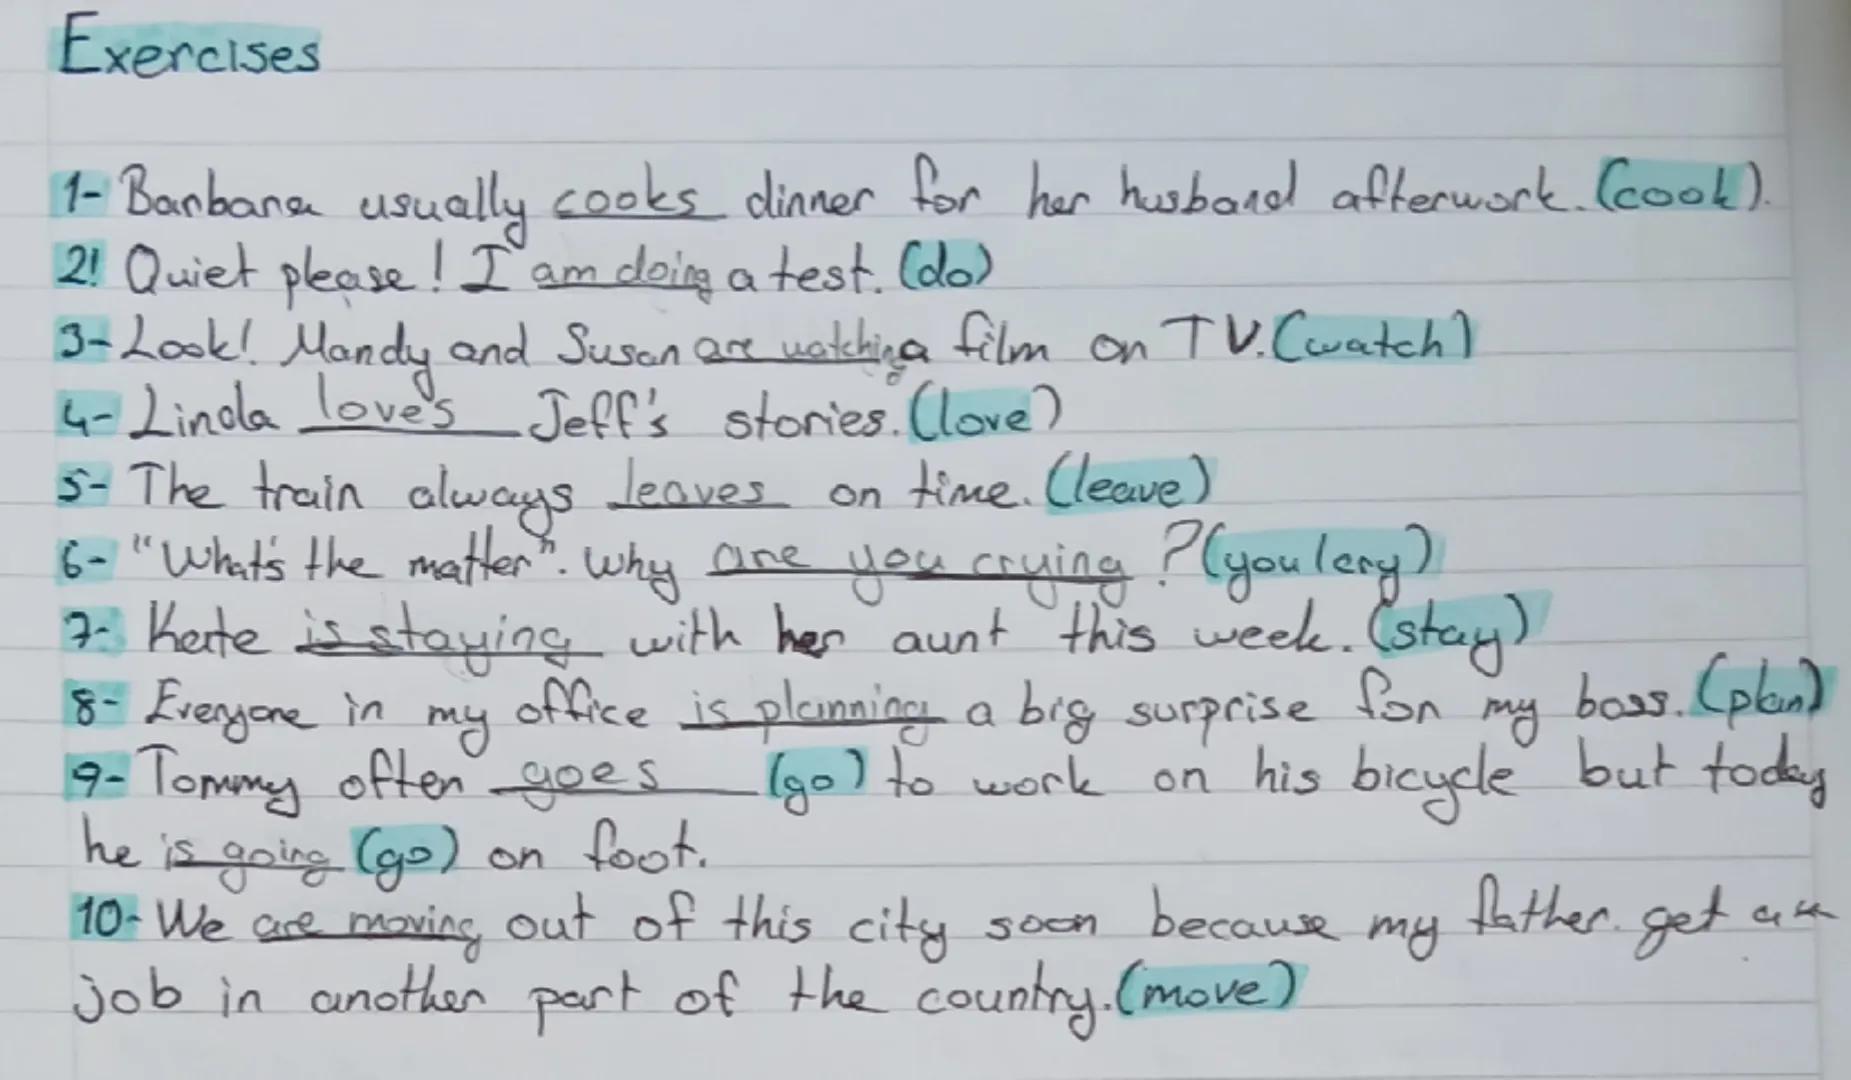 Exercises
1- Barbara usually cooks dinner for her husband afterwork. (cook).
2! Quiet please! I am doing a test. (do)
3- Look! Mandy and Susan are watching a film on TV. (watch)
4- Linda loves Jeff's stories. (love)
5- The train always leaves on time. (leave)
6- "What's the matter". Why are you crying? (you/cry)
7- Kate is staying with her aunt this week. (stay)
8- Everyone in my office is planning a big surprise for my boss. (plan)
9- Tommy often goes (go) to work on his bicycle but today
he is going (go) on foot.
10- We are moving out of this city soon because my father. get a
job in another part of the country. (move)